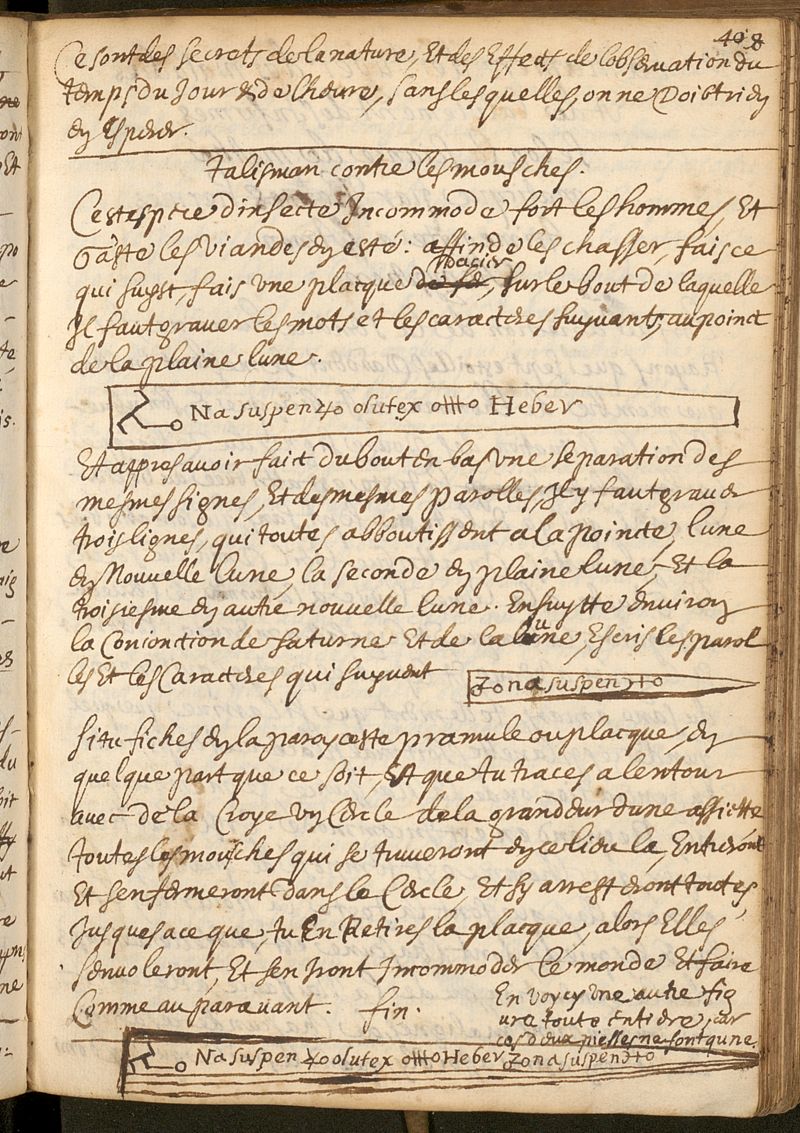 408
Ce sont des secrets de la nature, Et des Effects de lobseruation du
temps du Jour & de lheure, sans lesquelles, on ne Doibt rien
en Esperer.
Talisman contre les mousches.
Ceste espece dinsecte Incommode fort les hommes, Et
Gaste les viandes en esté: affin de les chasser, fais ce
qui suyst, fais vne placque de fer, sur le bout de laquelle
dacier
Jl faut grauer les mots et les caracteres suyuants, au poinct
de la plaine lune.
Na suspen 4o olutex o o Heber
Et appres auoir faict du bout en bas vne separation des
mesmes signes, Et des mesmes parolles, Jl y faut grauer
trois lignes, qui toutes abboutissent a la pointe, lune
en Nouuelle lune, la seconde en plaine lune, Et la
troisiesme en autre nouuelle lune. Ensuytte enuiron
la Conionction de saturne Et de la lune, Escris les parol
les Et les Caracteres qui suyuent
Zona suspen o
Si tu fiches en la paroy ceste pramule ou placque, en
quelque part que ce soit, Et que tu traces a lentour
auec de la Croye vn Cercle de la grandeur dune assiette
toutes les mousches qui se truueront en ce lieu la, Entreront
Et senfermeront dans le Cercle, Et sy arresteront toutes
Jusques a ce que, tu En Retires la placque, alors Elles
senuoleront, Et sen Jront Incommoder le monde Et faire
Comme au parauant. fin.
En voycy vne autre fig
ure toute entiere, car
ces deux piesses ne font qune.
Na suspen 4o olutex o o Heber Zona suspen o